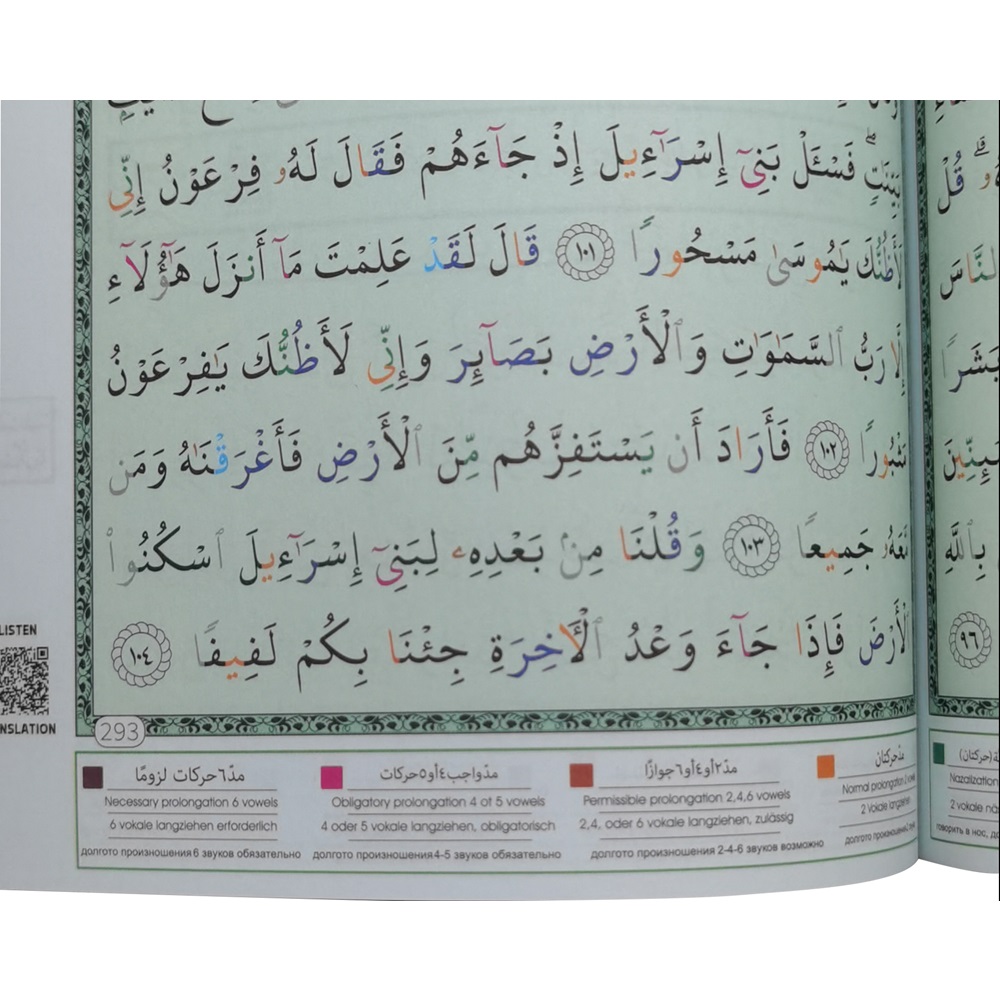 بَيِّنَٰتٖۖ فَسۡـَٔلۡ بَنِيٓ إِسۡرَٰٓءِيلَ إِذۡ جَآءَهُمۡ فَقَالَ لَهُۥ فِرۡعَوۡنُ إِنِّي
لَأَظُنُّكَ يَٰمُوسَىٰ مَسۡحُورٗا ١٠١ قَالَ لَقَدۡ عَلِمۡتَ مَآ أَنزَلَ هَٰٓؤُلَآءِ
إِلَّا رَبُّ ٱلسَّمَٰوَٰتِ وَٱلۡأَرۡضِ بَصَآئِرَ وَإِنِّي لَأَظُنُّكَ يَٰفِرۡعَوۡنُ
مَثۡبُورٗا ١٠٢ فَأَرَادَ أَن يَسۡتَفِزَّهُم مِّنَ ٱلۡأَرۡضِ فَأَغۡرَقۡنَٰهُ وَمَن
مَّعَهُۥ جَمِيعٗا ١٠٣ وَقُلۡنَا مِنۢ بَعۡدِهِۦ لِبَنِيٓ إِسۡرَٰٓءِيلَ ٱسۡكُنُواْ
ٱلۡأَرۡضَ فَإِذَا جَآءَ وَعۡدُ ٱلۡأٓخِرَةِ جِئۡنَا بِكُمۡ لَفِيفٗا ١٠٤
293
LISTEN
NSLATION
مدّ ٦ حركات لزومًا
Necessary prolongation 6 vowels
6 vokale langziehen erforderlich
долгото произношения 6 звуков обязательно
مدّ واجب ٤ أو ٥ حركات
Obligatory prolongation 4 ot 5 vowels
4 oder 5 vokale langziehen, obligatorisch
долгото произношения 4-5 звуков обязательно
مدّ ٢ أو ٤ أو ٦ جوازًا
Permissible prolongation 2,4,6 vowels
2,4, oder 6 vokale langziehen, zulässig
долгото произношения 2-4-6 звуков возможно
مدّ حركتان
Normal prolongation 2
2 Vokale langziehen
долгото произношения 2
قُلۡ
ٱلنَّاسَ
بَشَرٗا
بِٱللَّهِ
٩٦
(حركتان)
Nazalization
2 vokale
говорить в нос,